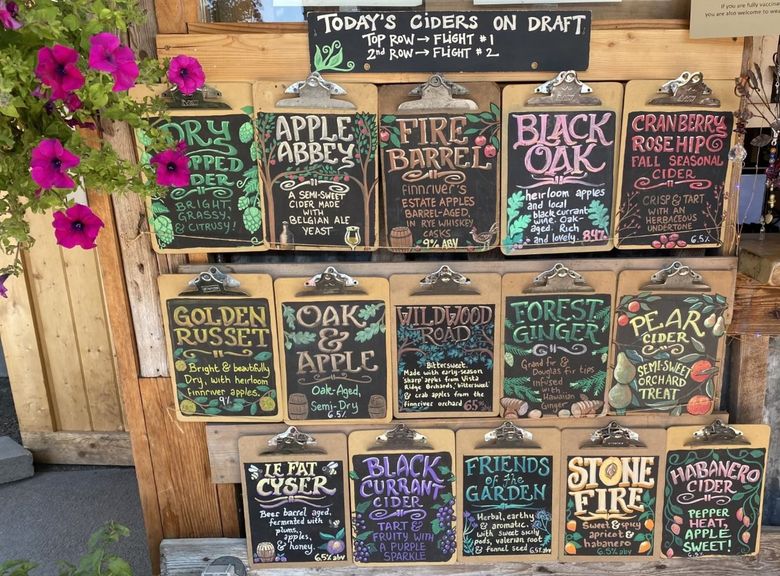 If you are fully vaccina
You are also welcome to wea
TODAY'S CIDERS ON DRAFT
TOP ROW → FLIGHT #1
2nd ROW → FLIGHT #2
DRY
HOPPED
CIDER
BRIGHT,
GRASSY,
& CITRUSY!
APPLE
ABBEY
A SEMI-SWEET
CIDER MADE
WITH
BELGIAN ALE
YEAST
FIRE
BARREL
FINNRIVER'S
ESTATE APPLES
BARREL-AGED,
IN RYE WHISKEY
CASKS
9% ABV
BLACK
OAK
heirloom apples
and local
black currant
wine. Oak-
aged. Rich
and lovely.
CRANBERRY
ROSEHIP
FALL SEASONAL
CIDER
CRISP & TART
WITH AN
HERBACEOUS
UNDERTONE
6.5%
GOLDEN
RUSSET
Bright & beautifully
Dry, with heirloom
finnriver apples.
9%
OAK
&
APPLE
Oak-Aged,
Semi-Dry
6.5%
WILDWOOD
ROAD
Bittersweet.
Made with early-season
sharp apples from Vista
Ridge Orchards, bittersweet
& crab apples from the
finnriver orchard 6.5%
FOREST
GINGER
Grand fir &
Douglas fir tips
infused
with
Hawaiian
Ginger
PEAR
CIDER
SEMI-SWEET
ORCHARD
TREAT
LE FAT
CYSER
Beer barrel aged,
fermented with
plums,
apples,
& honey.
BLACK
CURRANT
CIDER
TART &
FRUITY WITH
A PURPLE
SPARKLE
FRIENDS
OF THE
GARDEN
Herbal, earthy
& aromatic.
with sweet sicily
pods, valerian root
& fennel seed 6.5% abv
STONE
FIRE
Sweet & spicy
apricot &
habanero
6.5% abv
HABANERO
CIDER
PEPPER
HEAT,
APPLE
SWEET!